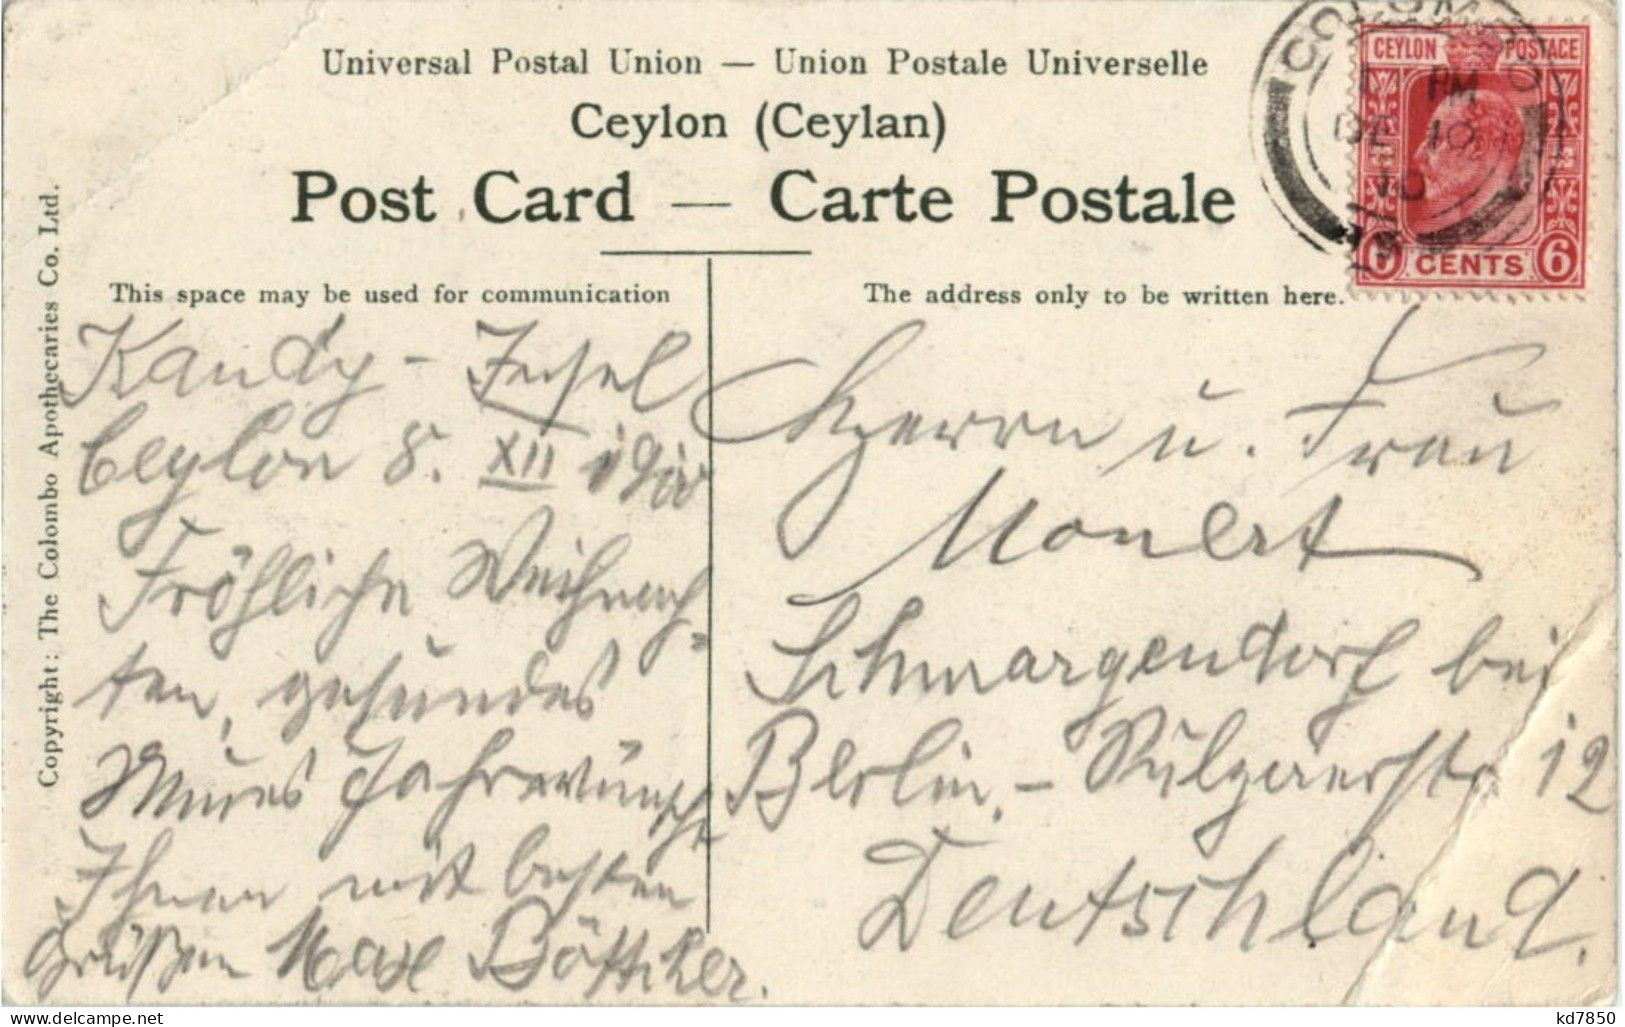 Universal Postal Union — Union Postale Universelle
Ceylon (Ceylan)
Post Card — Carte Postale
This space may be used for communication
The address only to be written here.
Copyright: The Colombo Apothecaries Co. Ltd.
COLOMBO
PM
DE 10
10
CEYLON POSTAGE
6 CENTS 6
Kandy - Insel
Ceylon 8. XII 1910
Fröhliche Weihnach-
ten, gesundes
Neues Jahr wünscht
Ihnen mit besten
Grüßen Max Böttcher.
Herrn u. Frau
Schmargendorf bei
Berlin, - Sulzaerstr 12
Deutschland.
kd7850